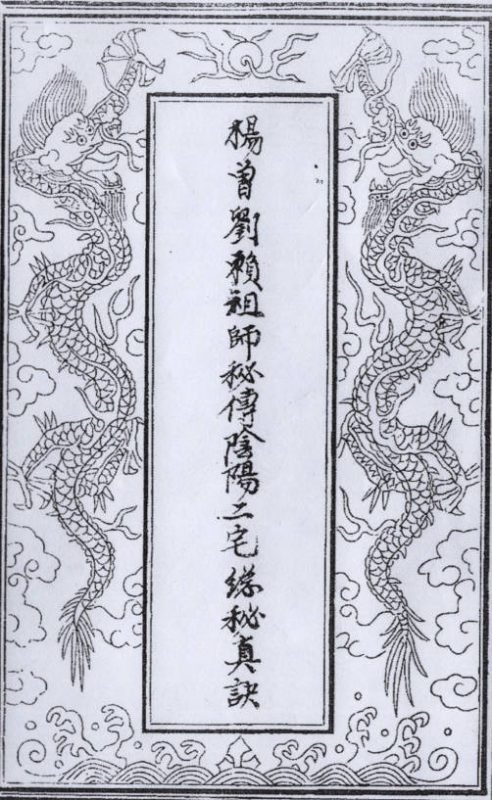 楊曾劉賴祖師秘傳陰陽二宅總秘真訣